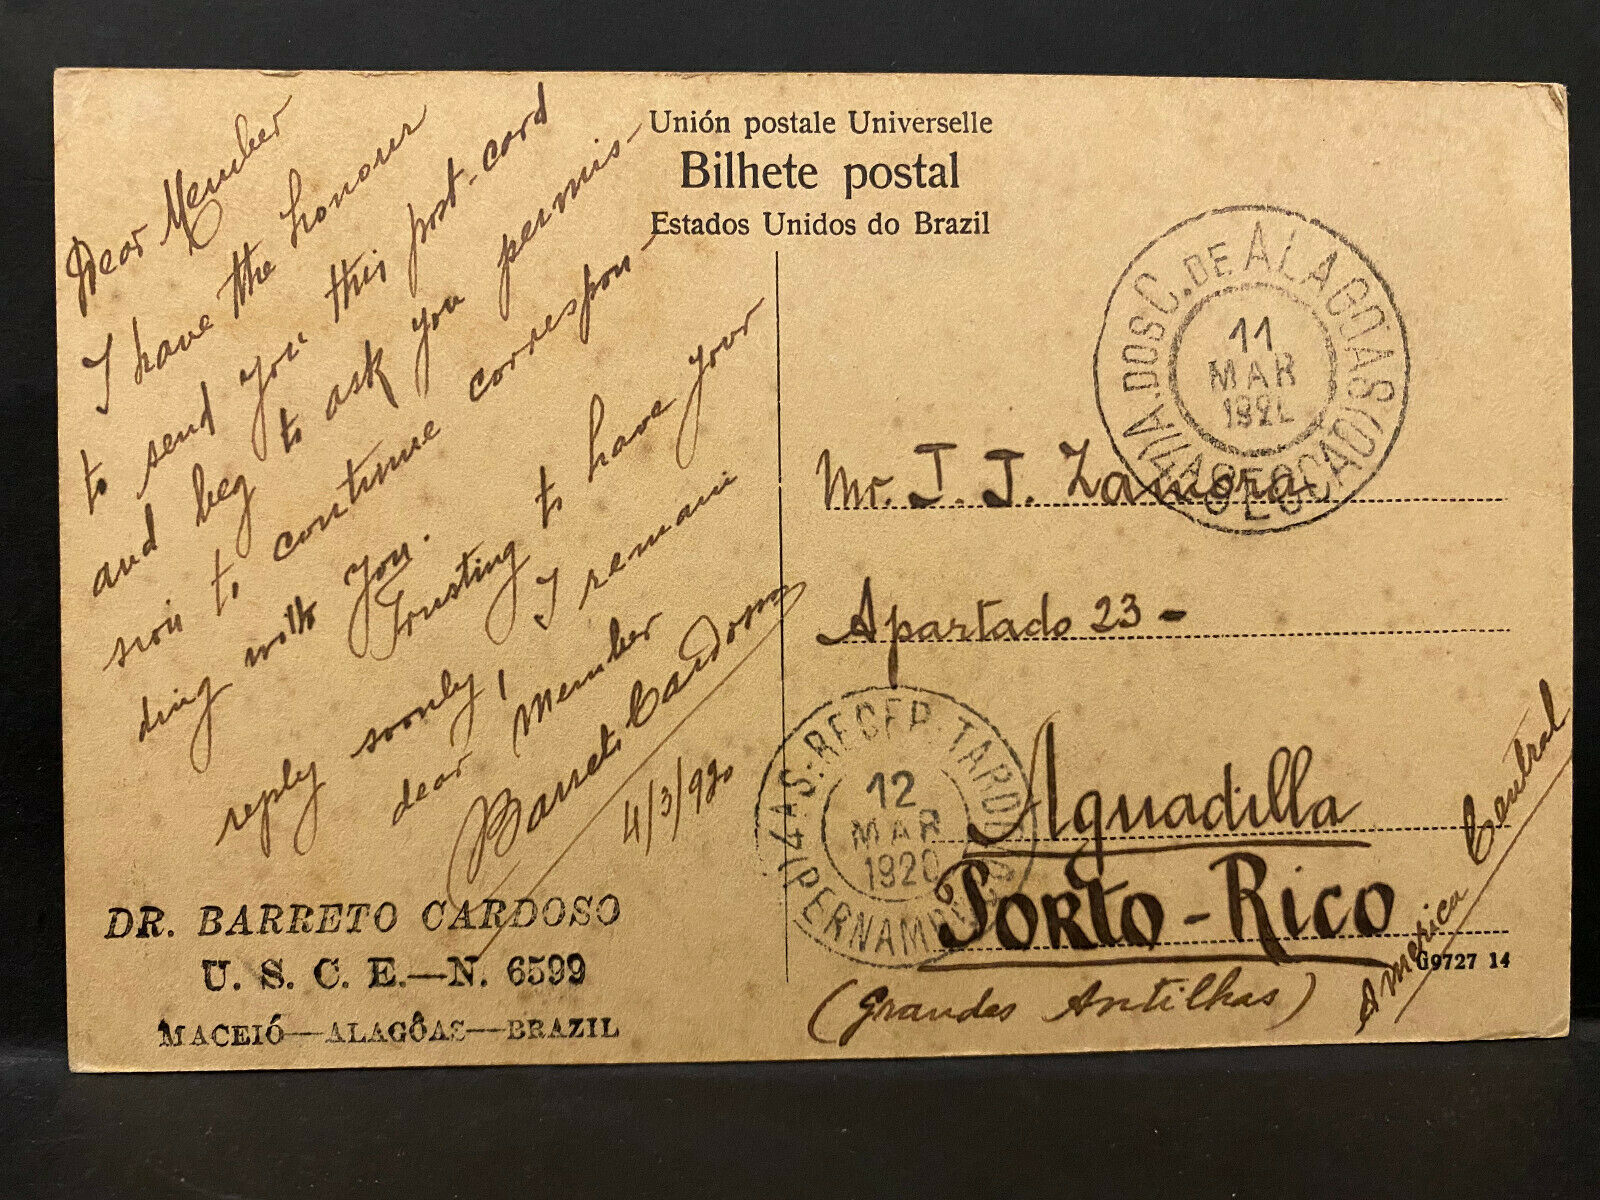 Unión postale Universelle
Bilhete postal
Estados Unidos do Brazil
Dear Member
I have the honour
to send you this post-card
and beg to ask you permis-
sion to continue correspon-
ding with you.
Trusting to have your
reply soonly, I remain
dear Member
Barreto Cardoso
4/3/920
DR. BARRETO CARDOSO
U. S. C. E.—N. 6599
MACEIÓ—ALAGÔAS—BRAZIL
C. DE ALAGOAS
11
MAR
Mr. J. J. Zamora
Apartado 23-
Aguadilla
Porto-Rico
(Grandes Antilhas)
America Central
G9727 14
RECEP. TARDIA
12
MAR
1920